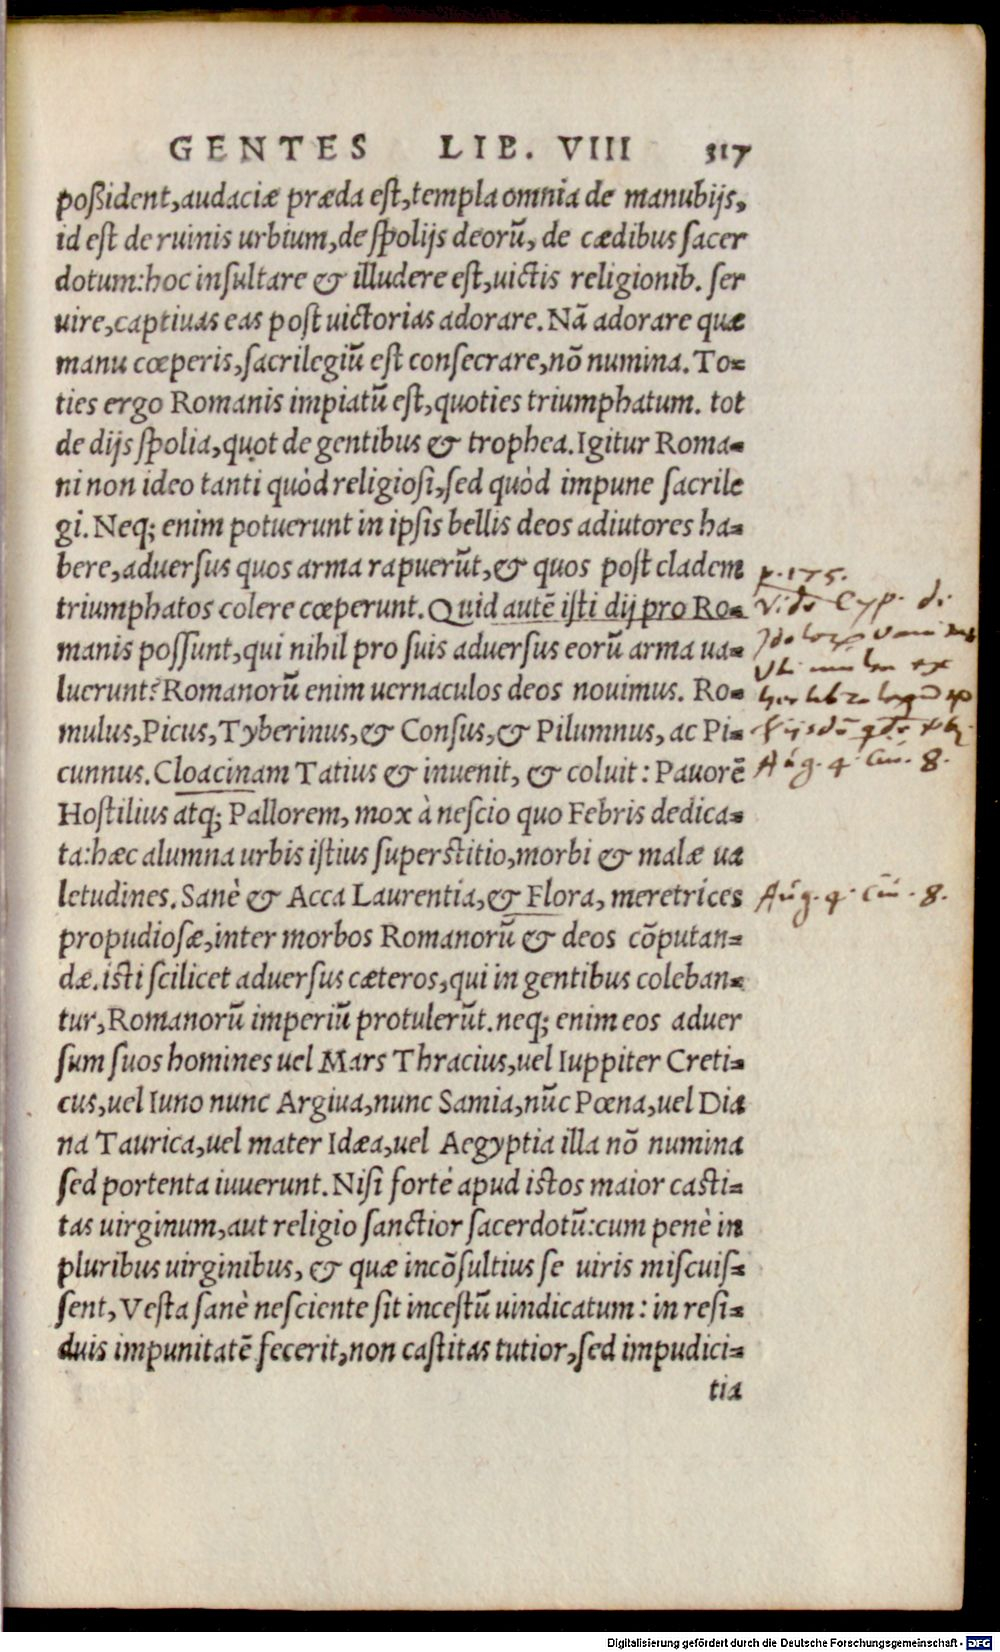 GENTES LIB. VIII 317
poßident,audaciæ præda est,templa omnia de manubijs,
id est de ruinis urbium,de spolijs deorũ, de cædibus sacer
dotum:hoc insultare & illudere est,uictis religionib. ser
uire,captiuas eas post uictorias adorare.Nã adorare quæ
manu cœperis,sacrilegiũ est consecrare,nõ numina. To-
ties ergo Romanis impiatũ est,quoties triumphatum. tot
de dijs spolia,quot de gentibus & trophea.Igitur Roma-
ni non ideo tanti quòd religiosi,sed quòd impune sacrile
gi. Neq; enim potuerunt in ipsis bellis deos adiutores ha-
bere,aduersus quos arma rapuerũt,& quos post cladem
triumphatos colere cœperunt. Quid autẽ isti dij pro Ro-
manis possunt,qui nihil pro suis aduersus eorũ arma ua-
luerunt? Romanorũ enim uernaculos deos nouimus. Ro-
mulus,Picus,Tyberinus,& Consus,& Pilumnus, ac Pi-
cunnus. Cloacinam Tatius & inuenit, & coluit: Pauorẽ
Hostilius atq; Pallorem, mox à nescio quo Febris dedica-
ta:hæc alumna urbis istius superstitio,morbi & malæ ua
letudines. Sanè & Acca Laurentia,& Flora, meretrices
propudiosæ,inter morbos Romanorũ & deos cõputan-
dæ.isti scilicet aduersus cæteros,qui in gentibus coleban-
tur,Romanorũ imperiũ protulerũt.neq; enim eos aduer
sum suos homines uel Mars Thracius,uel Iuppiter Creti-
cus,uel Iuno nunc Argiua,nunc Samia,nũc Pœna,uel Dia
na Taurica,uel mater Idæa,uel Aegyptia illa nõ numina
sed portenta iuuerunt. Nisi fortè apud istos maior casti-
tas uirginum,aut religio sanctior sacerdotũ:cum penè in
pluribus uirginibus, & quæ incõsultius se uiris miscuis-
sent, Vesta sanè nesciente sit incestũ uindicatum: in resi-
duis impunitatẽ fecerit,non castitas tutior,sed impudici-
tia
p. 175.
Vide Cyp. de
Aug. 4. Ciu. 8.
Aug. 4. Ciu. 8.
Digitalisierung gefördert durch die Deutsche Forschungsgemeinschaft - DFG